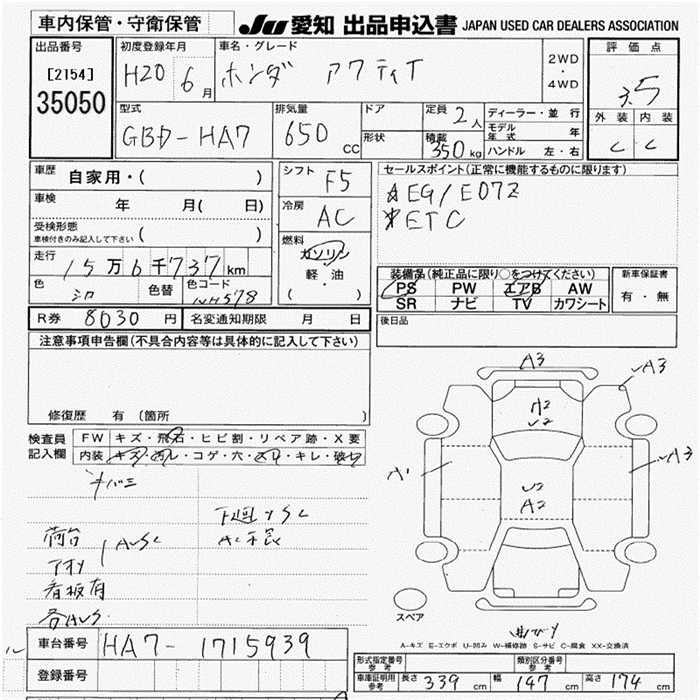 車内保管・守衛保管
JU 愛知 出品申込書 JAPAN USED CAR DEALERS ASSOCIATION
出品番号
[2154]
35050
初度登録年月
H20 6月
車名・グレード
ホンダ アクティT
2WD
・
4WD
評価点
3.5
外装 内装
C C
型式
GBD-HA7
排気量
650 CC
ドア
形状
定員 2人
積載 350kg
ディーラー・並行
モデル年式 年
ハンドル 左・右
車歴
自家用・( )
車検
年 月(日 )
受検形態
車検付きのみ記入して下さい ( )
走行
15万6千737km
色
シロ
色替
色コード
NH578
シフト
F5
冷房
AC
燃料
ガソリン
軽・油
( )
セールスポイント(正常に機能するものに限ります)
EG/E07Z
ETC
装備品(純正品に限り○をつけてください)
PS PW エアB AW
SR ナビ TV カワシート
新車保証書
有・無
R券 8030円
名変通知期限 月 日
後日品
注意事項申告欄(不具合内容等は具体的に記入して下さい)
修復歴 有 (箇所 )
検査員記入欄
FW キズ・飛石・ヒビ割・リペア跡・X要
内装 キズ・汚レ・コゲ・穴・スレ・キレ・破レ
下廻りSC
AC不良
荷台
アオリ
AUSC
看板有
各AUS
A3
A3
A2
U2
A1
A3
U2
A2
スペア
A-キズ E-エクボ U-凹み W-補修跡 S-サビ C-腐食 XX-交換済
車台番号 HA7-1715939
登録番号
形式指定番号
参考
類別区分番号
参考
車庫証明用
参考
長さ 339 cm 幅 147 cm 高さ 174 cm